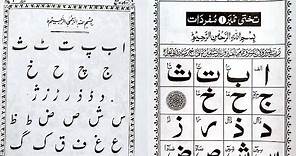 بسم اللہ الرحمن الرحیم
ا ب پ ت ٹ ث
ج چ ح خ
د ڈ ذ ر ڑ ز ژ
س ش ص ض ط ظ
ع غ ف ق ک گ
تختی نمبر ۱ مفردات
بِسْمِ اللهِ الرَّحْمٰنِ الرَّحِيْمِ
ا ب ت ث
ج ح خ
د ذ ر ز
س ش ص ض